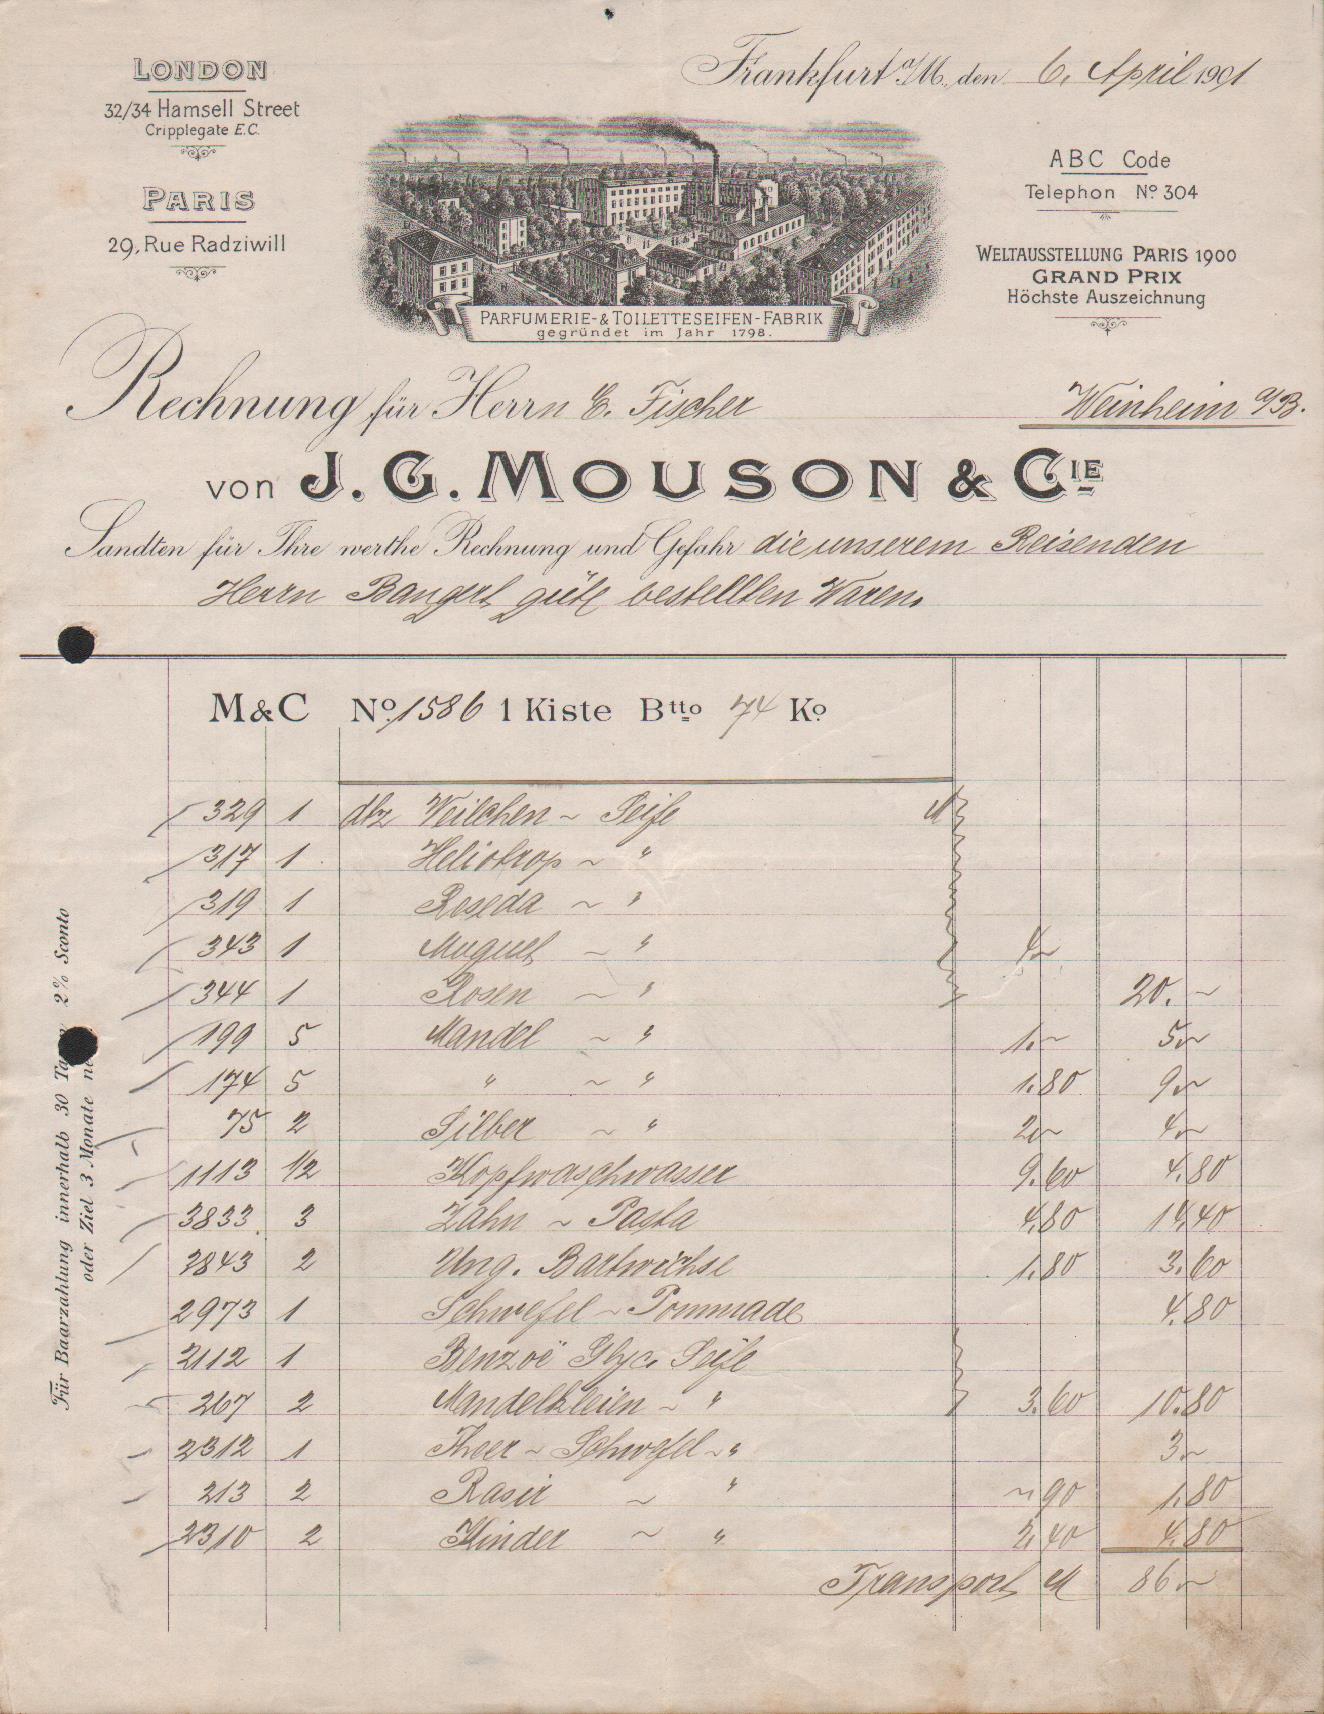 LONDON
32/34 Hamsell Street
Cripplegate E.C.
PARIS
29, Rue Radziwill
Frankfurt a/M., den 6. April 1901
ABC Code
Telephon No. 304
WELTAUSSTELLUNG PARIS 1900
GRAND PRIX
Höchste Auszeichnung
PARFUMERIE- & TOILETTESEIFEN-FABRIK
gegründet im Jahr 1798.
Rechnung für Herrn E. Fischer Weinheim a/B.
von J. G. MOUSON & CIE
Sandten für Ihre werthe Rechnung und Gefahr die unserem Reisenden
Herrn Bangert gütl bestellten Waren.
M & C No. 1586 1 Kiste Btto 74 Ko.
329 1 dtz Veilchen ~ Seife M
317 1 Heliotrop ~ "
319 1 Reseda ~ "
343 1 Muguet ~ " 4~
344 1 Rosen ~ " 20.~
199 5 Mandel ~ " 1.~ 5.~
174 5 " ~ " 1.80 9.~
75 2 Silber ~ " 2.~ 4.~
1113 1/2 Kopfwaschwasser 9.60 4.80
3833 3 Zahn ~ Pasta 4.80 14.40
2843 2 Ung. Bartwichse 1.80 3.60
2973 1 Schwefel ~ Pommade 4.80
2112 1 Benzoë Glyc. Seife
267 2 Mandelkleien ~ " 3.60 10.80
2312 1 Theer ~ Schwefel ~ " 3~
213 2 Rasir ~ " ~.90 1.80
2310 2 Kinder ~ " 2.40 4.80
Transport M 86.~
Für Baarzahlung innerhalb 30 2% Sconto
oder Ziel 3 Monate